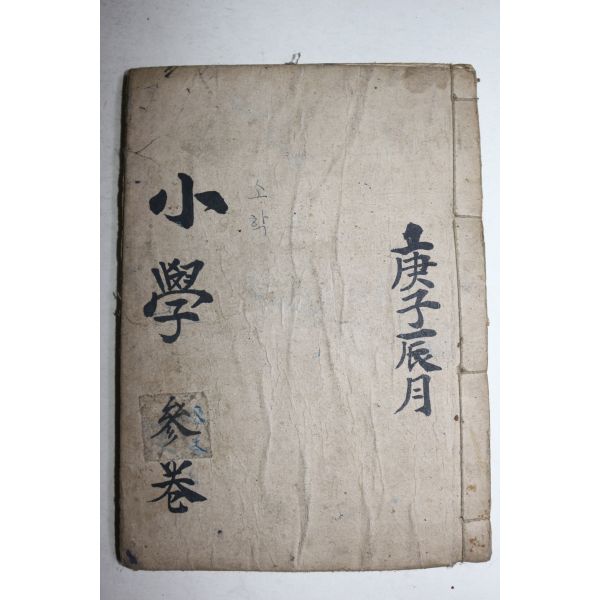 庚子辰月
소학
小學 參卷